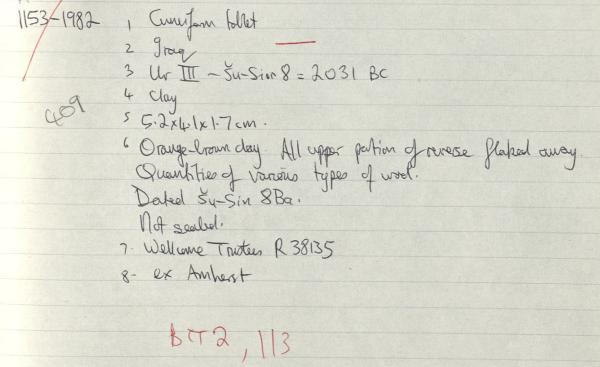 1153-1982 1 Cuneiform tablet
2 Iraq
3 Ur III - Šu-Sin 8 = 2031 BC
4 Clay
409
5 5.2x4.1x1.7cm.
6 Orange-brown clay. All upper portion of reverse flaked away.
Quantities of various types of wool.
Dated Šu-Sin 8Ba.
Not sealed.
7. Wellcome Trustees R 38135
8- ex Amherst
BTT2, 113